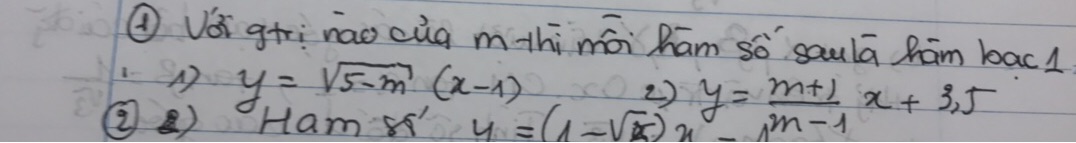 ① Với gtrị nào của m thì mỗi hàm số sau là hàm bạc 1
1) y = √(5-m) (x-1) 2) y = (m+1)/(m-1) x + 3,5
② 2) Ham số y = (1-√